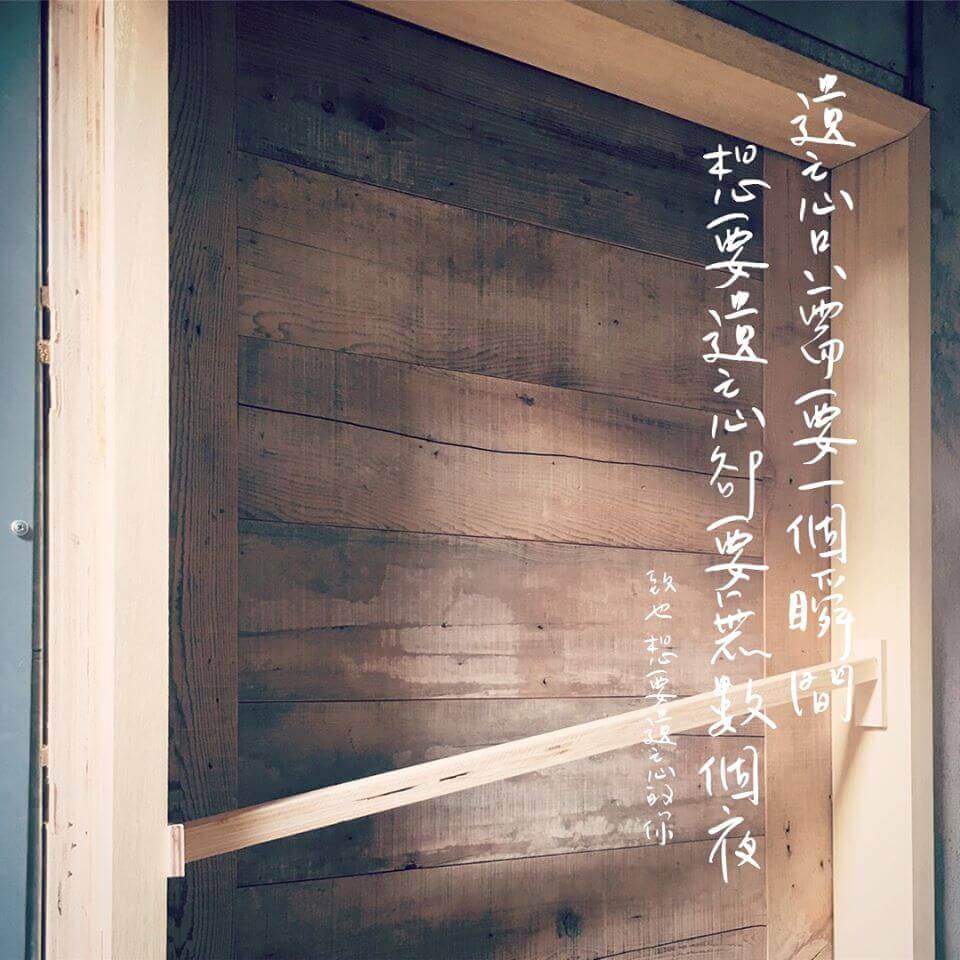 遺忘只需要一個瞬間
想要遺忘卻要無數個夜
致也 想要遺忘的你